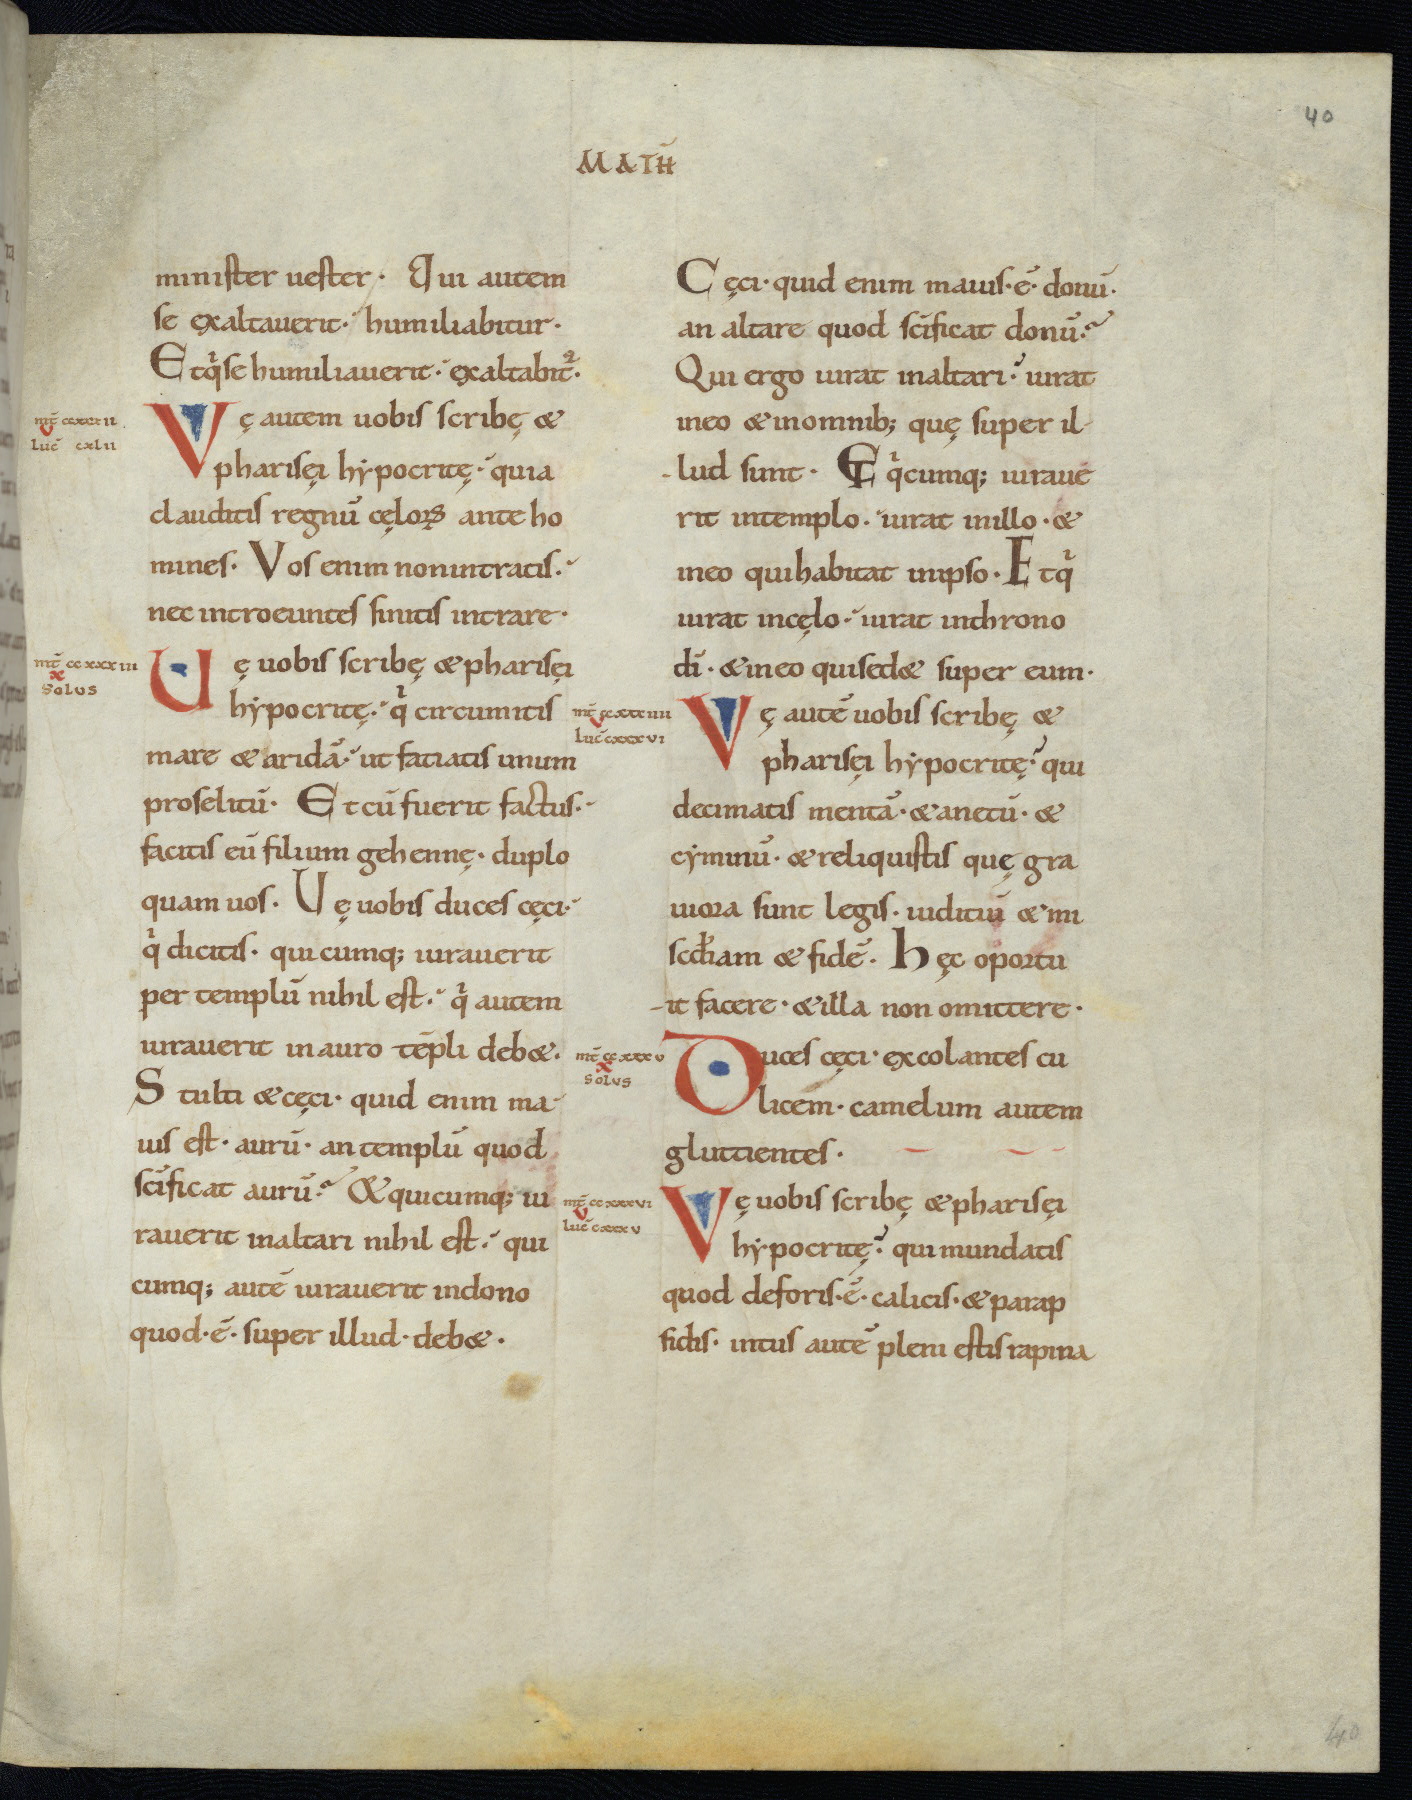 40
MATH̄
minister uester· Qui autem
se exaltauerit· humiliabitur·
Et qͥ se humiliauerit· exaltabit᷑·
mt̄ ccxxxii
V
luc̄ cxlii
Vę autem uobis scribę &
pharisęi hẏpocritę· quia
clauditis regnū cęloꝝ ante ho
mines· Vos enim non intratis·
nec introeuntes sinitis intrare·
mt̄ ccxxxiii
x
Solus
Uę uobis scribę & pharisęi
hẏpocritę· qͥ circumitis
mare & aridā· ut faciatis unum
proselitū· Et cū fuerit factus·
facitis eū filium gehennę· duplo
quam uos· Uę uobis duces cęci·
qͥ dicitis· quicumq; iurauerit
per templū nihil est· qͥ autem
iurauerit in auro tēpli deb&·
Stulti & cęci· quid enim ma
ius est· aurū· an templū quod
sc̄ificat aurū? & quicumq; iu
rauerit in altari nihil est· qui
cumq; autē iurauerit in dono
quod·ē· super illud· deb&·
Cęci· quid enim maius·ē· donū·
an altare quod sc̄ificat donū?
Qui ergo iurat in altari· iurat
in eo & in omnib; quę super il-
-lud sunt· Et qͥcumq; iuraue
rit in templo· iurat in illo· &
in eo qui habitat in ipso· Et qͥ
iurat in cęlo· iurat in throno
dī· & in eo qui sed& super eum·
mt̄ ccxxxiiii
V
luc̄ cxxxvi
Vę autē uobis scribę &
pharisęi hẏpocritę· qui
decimatis mentā· & anetū· &
cẏminū· & reliquistis quę gra
uiora sunt legis· iuditiū & mi
sc̄diam & fidē· Hęc oportu
-it facere· & illa non omittere·
mt̄ ccxxxv
x
Solus
Duces cęci· excolantes cu
licem· camelum autem
gluttientes·
mt̄ ccxxxvi
V
luc̄ cxxxv
Vę uobis scribę & pharisęi
hẏpocritę· qui mundatis
quod deforis·ē· calicis· & parap
sidis· intus autē pleni estis rapina
40